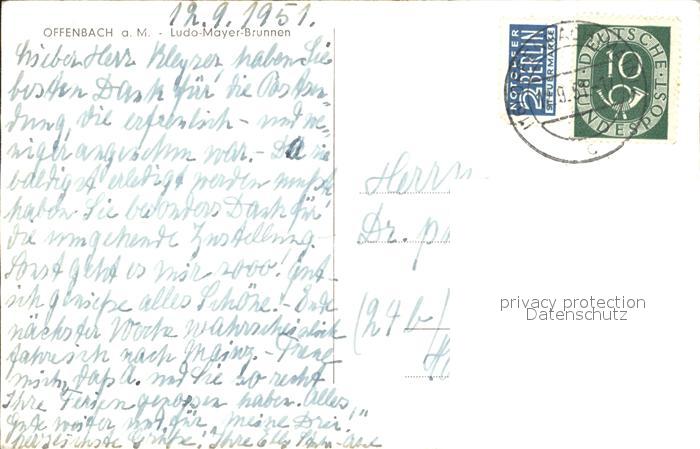 12.9.1951.
OFFENBACH a. M. - Ludo-Mayer-Brunnen
Lieber Herr Kleyser, haben Sie
besten Dank für die Postsen-
dung, die erfreulich - und we-
niger angenehm war. - Da sie
baldigst erledigt werden mußte
haben Sie besonders Dank für
die umgehende Zustellung.
Sonst geht es mir sooo! gut -
ich genieße alles Schöne! - Ende
nächster Woche wahrscheinlich
fahre ich nach Mainz. - Freue
mich, daß A. und Sie so recht
Ihre Ferien genossen haben. Alles
Gute weiter und für "meine Drei"
herzlichste Grüße! Ihre Elly
NOTOPFER
2 BERLIN
STEUERMARKE
DEUTSCHE
10
BUNDESPOST
Herrn
Dr.
(24b)
privacy protection
Datenschutz